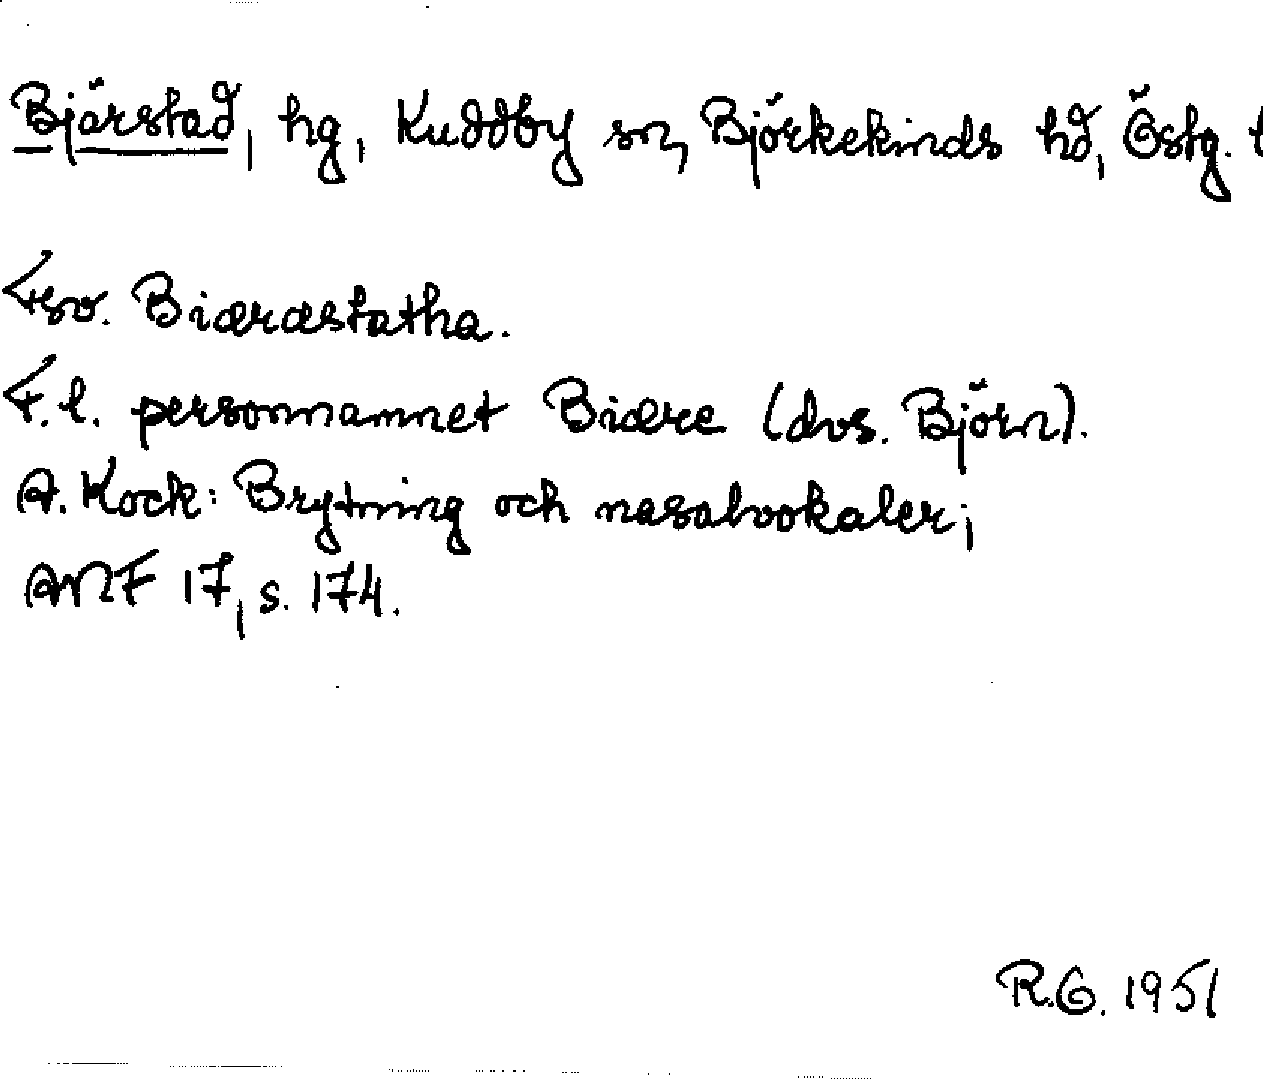 Bjärstad, hg, Kuddby sn, Björkekinds hd, Östg. l
Fsv. Biæræstatha.
F.l. personnamnet Biære (dvs. Björn).
A. Kock: Brytning och nasalvokaler;
ANF 17, s. 174.
R.G. 1951